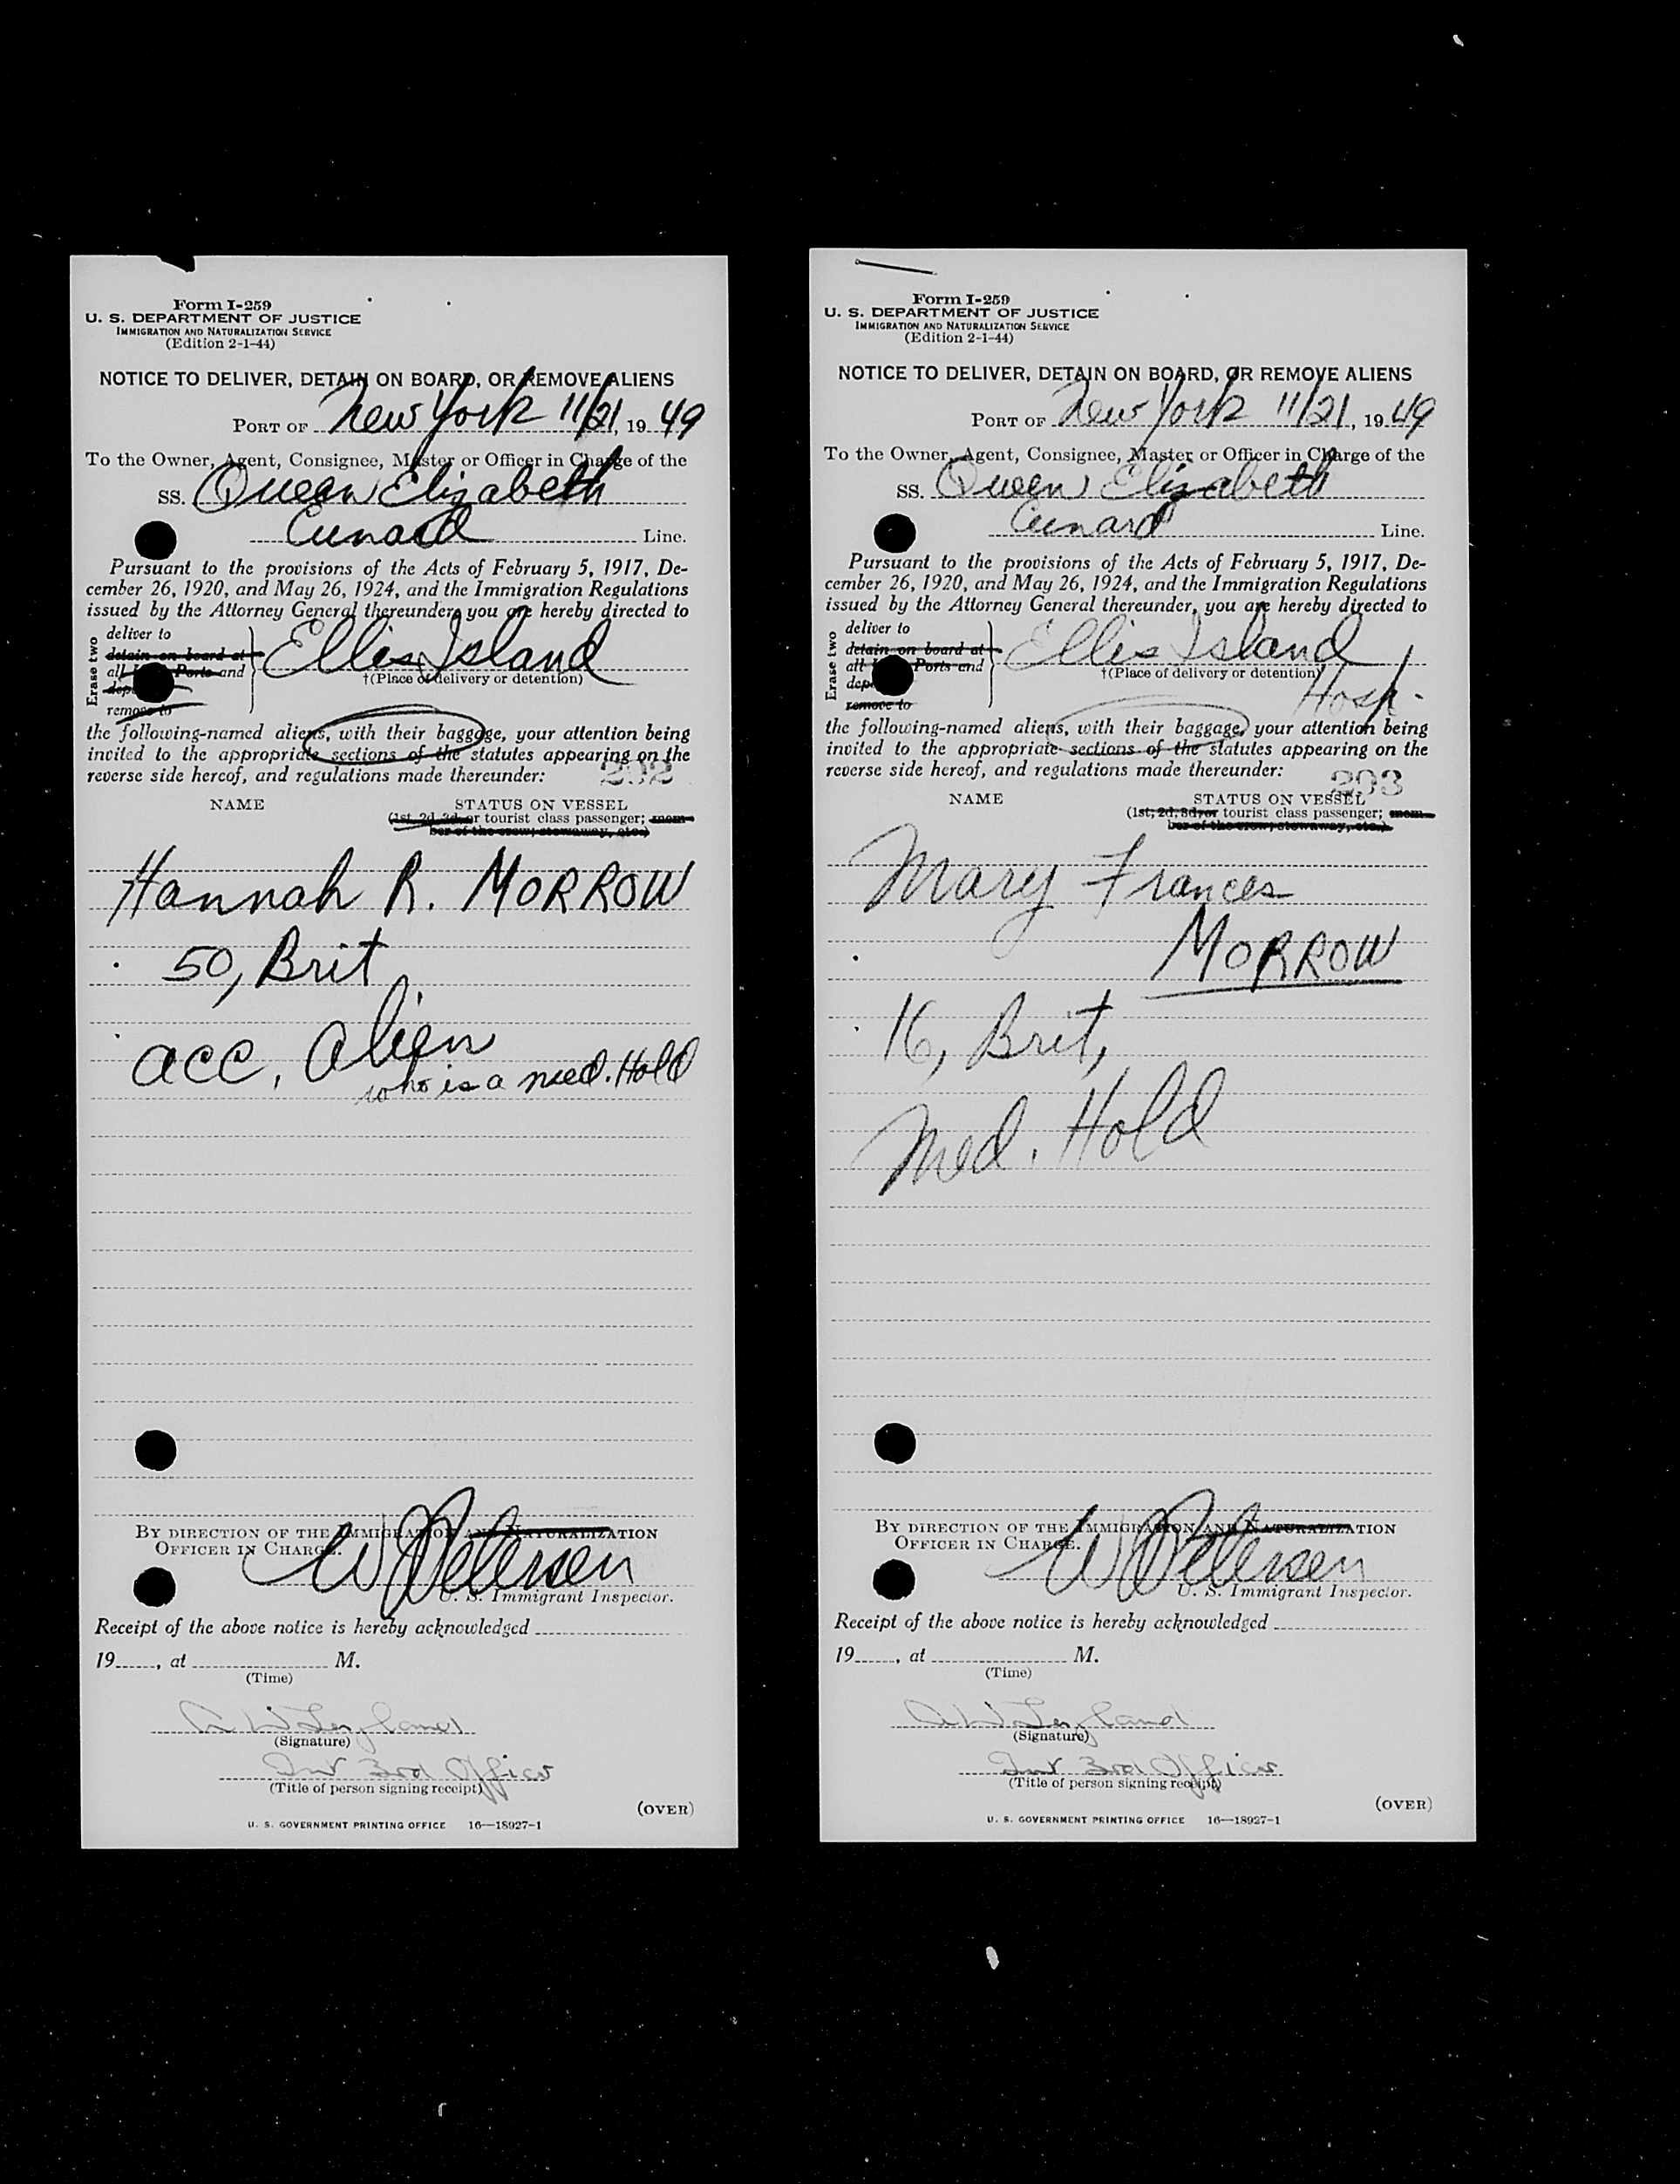 Form I-259
U. S. DEPARTMENT OF JUSTICE
IMMIGRATION AND NATURALIZATION SERVICE
(Edition 2-1-44)
NOTICE TO DELIVER, DETAIN ON BOARD, OR REMOVE ALIENS
PORT OF New York 11/21, 1949
To the Owner, Agent, Consignee, Master or Officer in Charge of the
SS. Queen Elizabeth
Cunard Line.
Pursuant to the provisions of the Acts of February 5, 1917, De-
cember 26, 1920, and May 26, 1924, and the Immigration Regulations
issued by the Attorney General thereunder, you are hereby directed to
Erase two
deliver to
detain on board at
all Ports and
remove to
Ellis Island
†(Place of delivery or detention)
the following-named aliens, with their baggage, your attention being
invited to the appropriate sections of the statutes appearing on the
reverse side hereof, and regulations made thereunder:
202
NAME STATUS ON VESSEL
(1st, 2d, 3d, or tourist class passenger; mem-
ber of the crew; stowaway, etc.)
Hannah R. MORROW
50, Brit
acc. alien
who is a med. Hold
BY DIRECTION OF THE IMMIGRATION AND NATURALIZATION
OFFICER IN CHARGE.
W Petersen
U. S. Immigrant Inspector.
Receipt of the above notice is hereby acknowledged
19 , at M.
(Time)
(Signature)
3rd Officer
(Title of person signing receipt)
(OVER)
U. S. GOVERNMENT PRINTING OFFICE 16—18927-1
Form I-259
U. S. DEPARTMENT OF JUSTICE
IMMIGRATION AND NATURALIZATION SERVICE
(Edition 2-1-44)
NOTICE TO DELIVER, DETAIN ON BOARD, OR REMOVE ALIENS
PORT OF New York 11/21, 1949
To the Owner, Agent, Consignee, Master or Officer in Charge of the
SS. Queen Elizabeth
Cunard Line.
Pursuant to the provisions of the Acts of February 5, 1917, De-
cember 26, 1920, and May 26, 1924, and the Immigration Regulations
issued by the Attorney General thereunder, you are hereby directed to
Erase two
deliver to
detain on board at
all Ports and
remove to
Ellis Island
†(Place of delivery or detention)
Hosp.
the following-named aliens, with their baggage, your attention being
invited to the appropriate sections of the statutes appearing on the
reverse side hereof, and regulations made thereunder:
203
NAME STATUS ON VESSEL
(1st, 2d, 3d, or tourist class passenger; mem-
ber of the crew; stowaway, etc.)
Mary Frances
MORROW
16, Brit,
Med. Hold
BY DIRECTION OF THE IMMIGRATION AND NATURALIZATION
OFFICER IN CHARGE.
W Petersen
U. S. Immigrant Inspector.
Receipt of the above notice is hereby acknowledged
19 , at M.
(Time)
(Signature)
3rd Officer
(Title of person signing receipt)
(OVER)
U. S. GOVERNMENT PRINTING OFFICE 16—18927-1